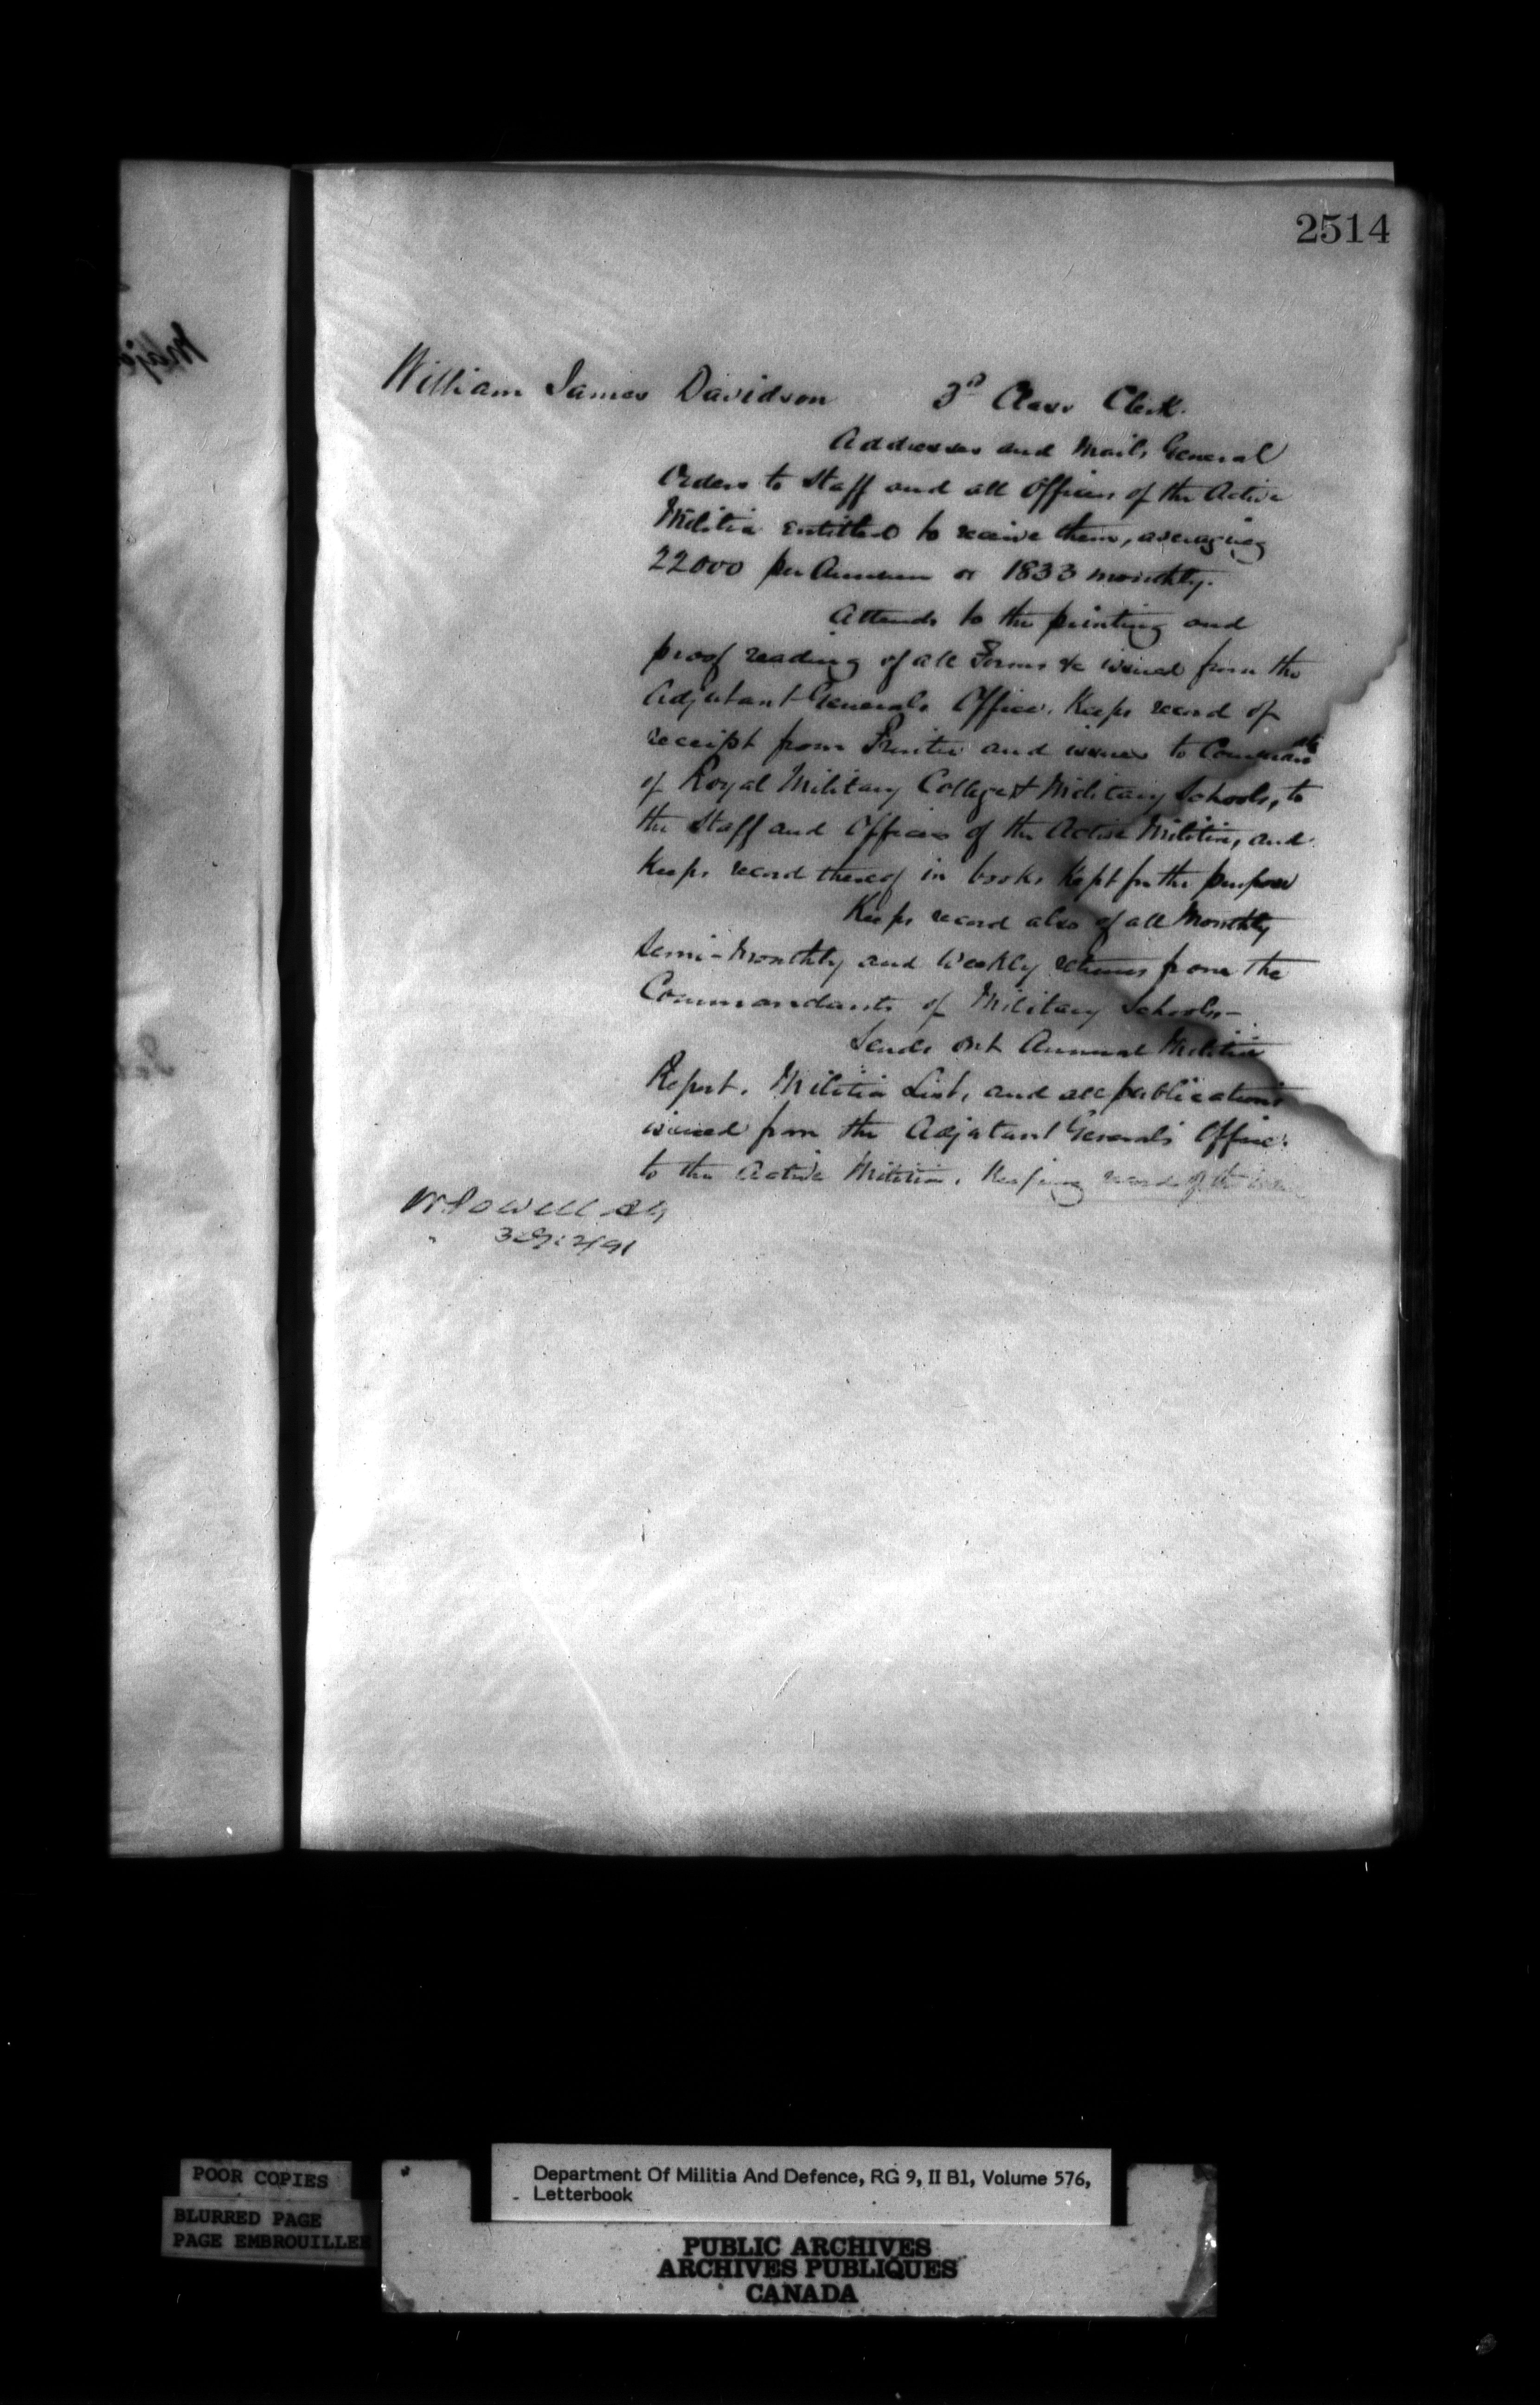 2514
William James Davidson 3d Class Clerk.
Addresses and Mails General
Orders to Staff and all Officers of the Active
Militia entitled to receive them, averaging
22000 per Annum or 1833 monthly.
Attends to the printing and
proof reading of all Forms &c issued from the
Adjutant-Generals Office. Keeps record of
receipt from Printer and issues to Commandts
of Royal Military College & Military Schools, to
the Staff and Officers of the Active Militia, and
keeps record thereof in books kept for the purpose
Keeps record also of all Monthly
Semi-Monthly and Weekly returns from the
Commandants of Military Schools-
Sends out Annual Militia
Report, Militia List, and all publications
issued from the Adjutant General's Office
to the Active Militia, Keeping record of the
W Powell AG
POOR COPIES
BLURRED PAGE
PAGE EMBROUILLEE
Department Of Militia And Defence, RG 9, II B1, Volume 576,
Letterbook
PUBLIC ARCHIVES
ARCHIVES PUBLIQUES
CANADA